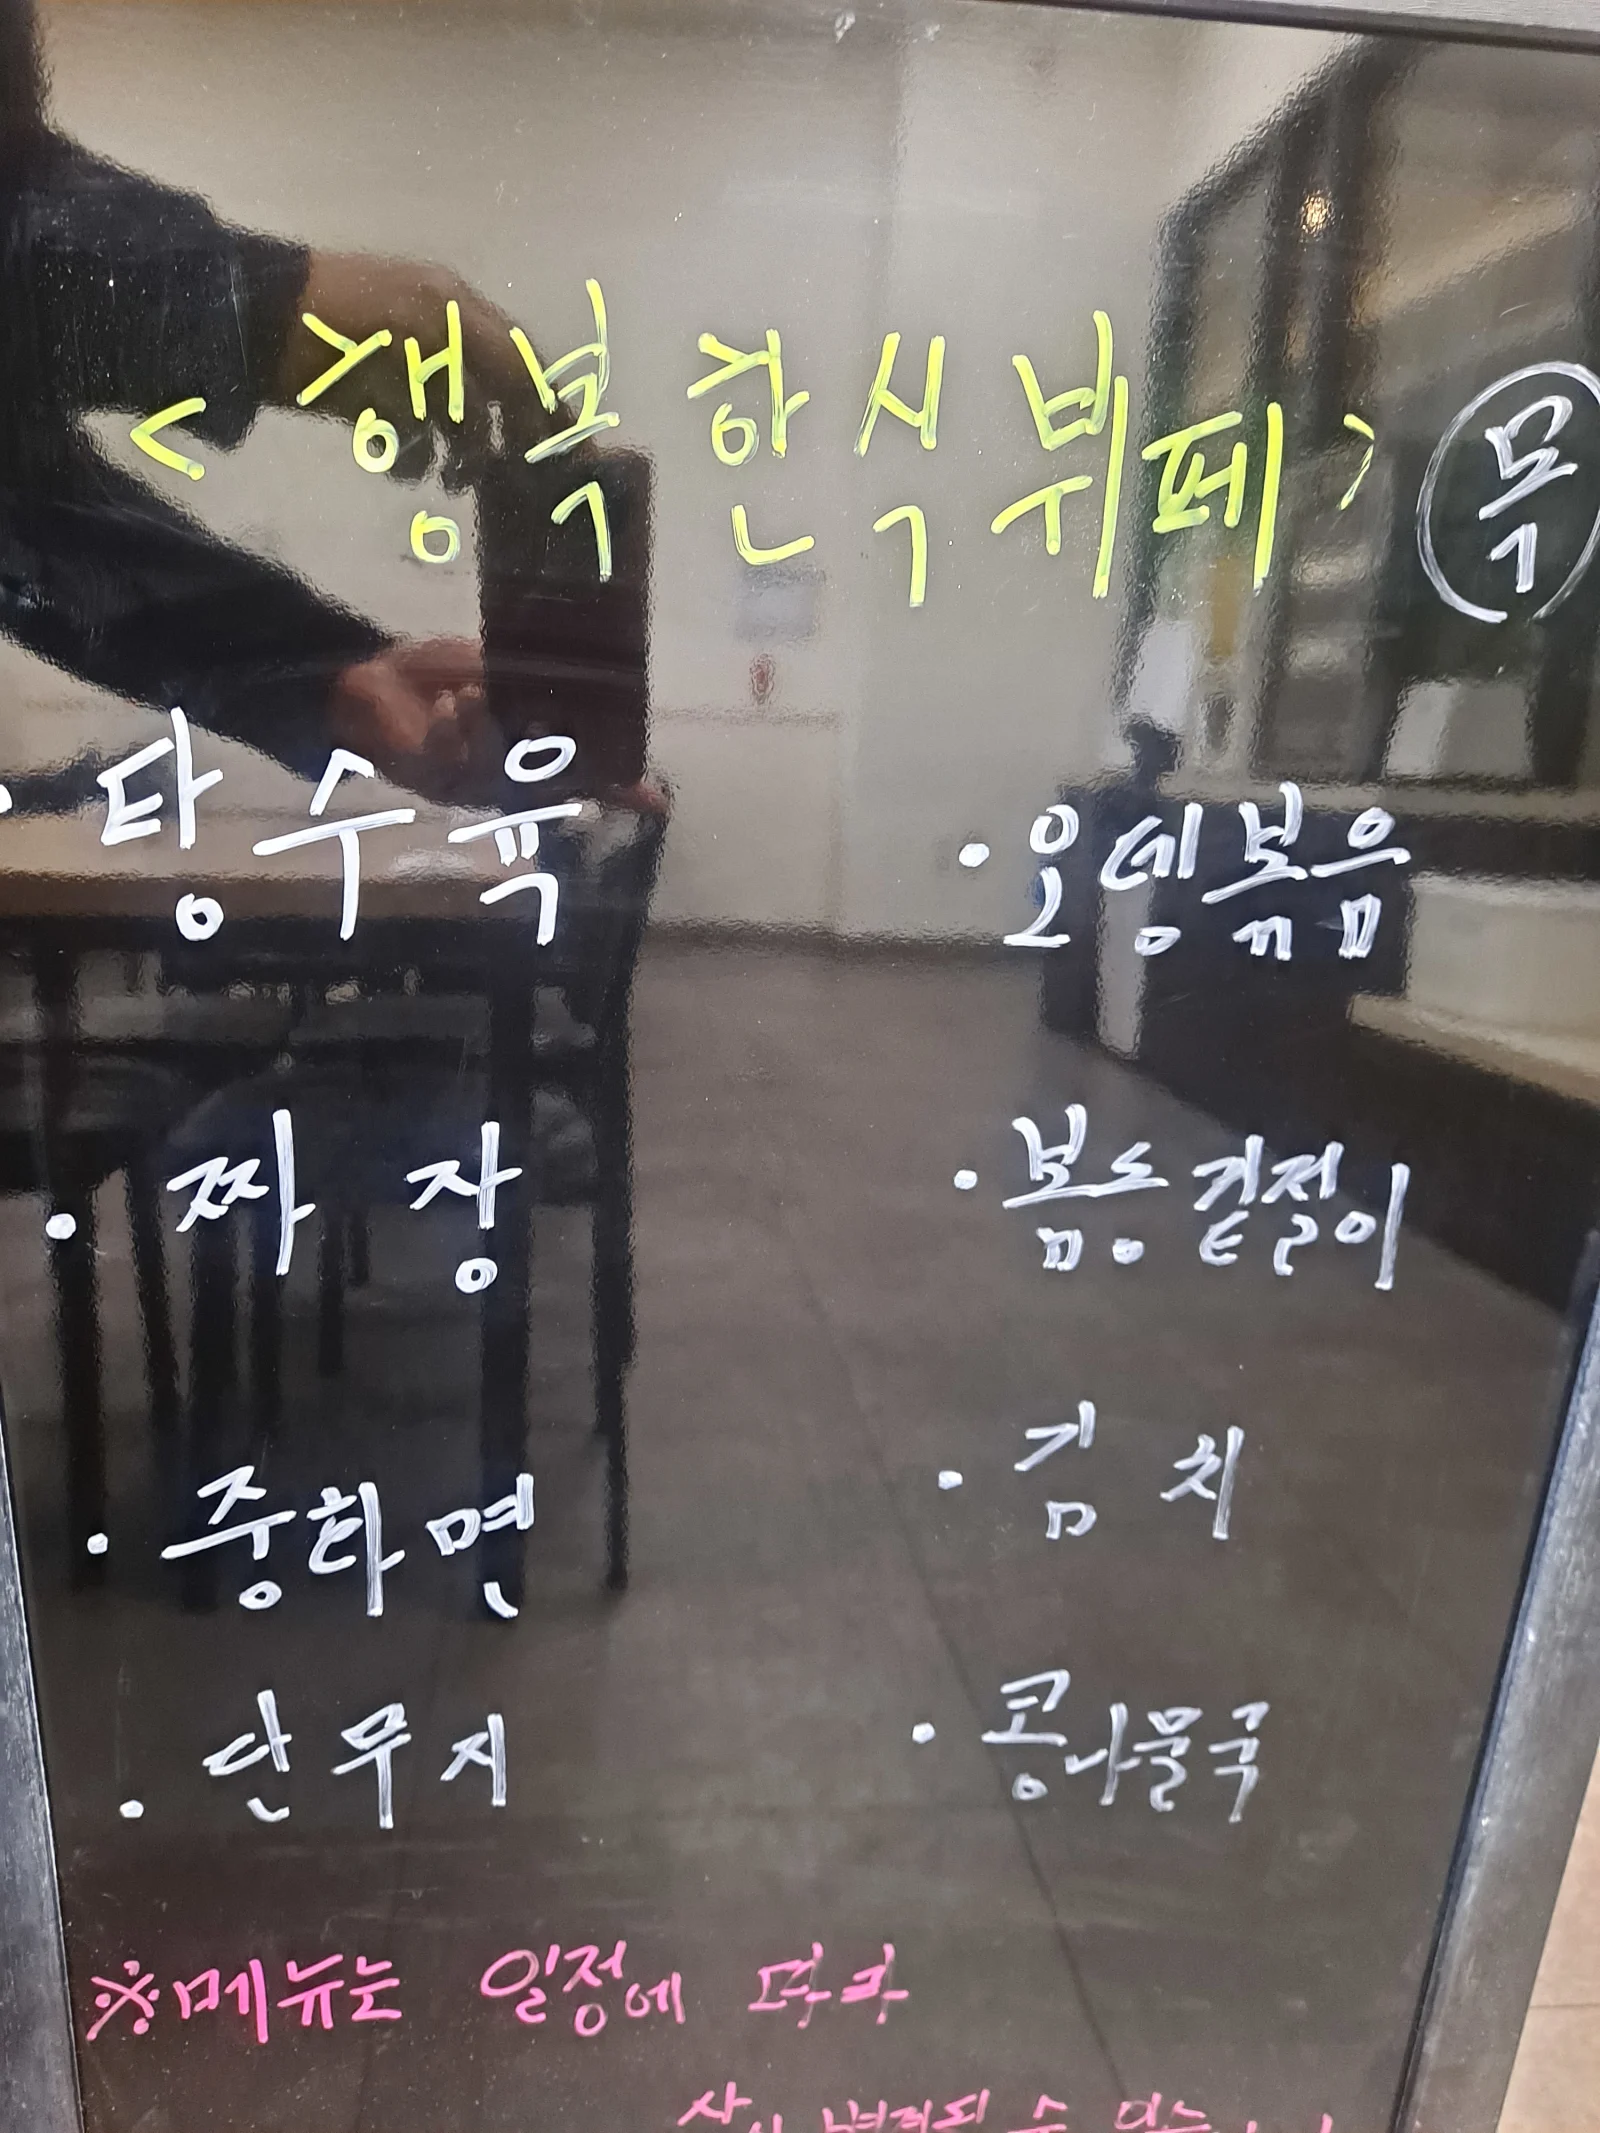 <행복한식뷔페> 목
· 탕수육
· 오뎅볶음
· 짜장
· 봄동겉절이
· 중화면
· 김치
· 단무지
· 콩나물국
※메뉴는 일정에 따라
수